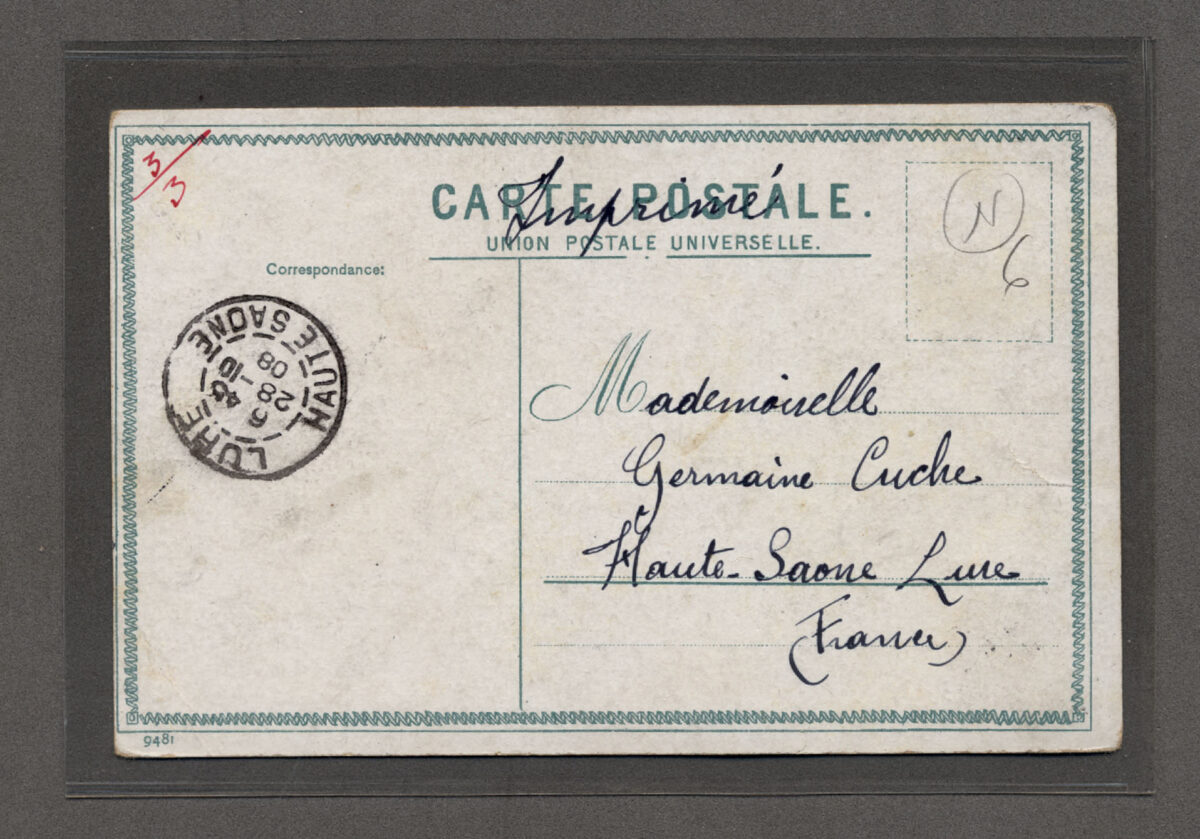 3/3
CARTE POSTALE.
Imprimé
UNION POSTALE UNIVERSELLE.
N
6
Correspondance:
LURE
HAUTE SAONE
6 45
28 -10
08
Mademoiselle
Germaine Cuche
Haute-Saone Lure
(France)
9481